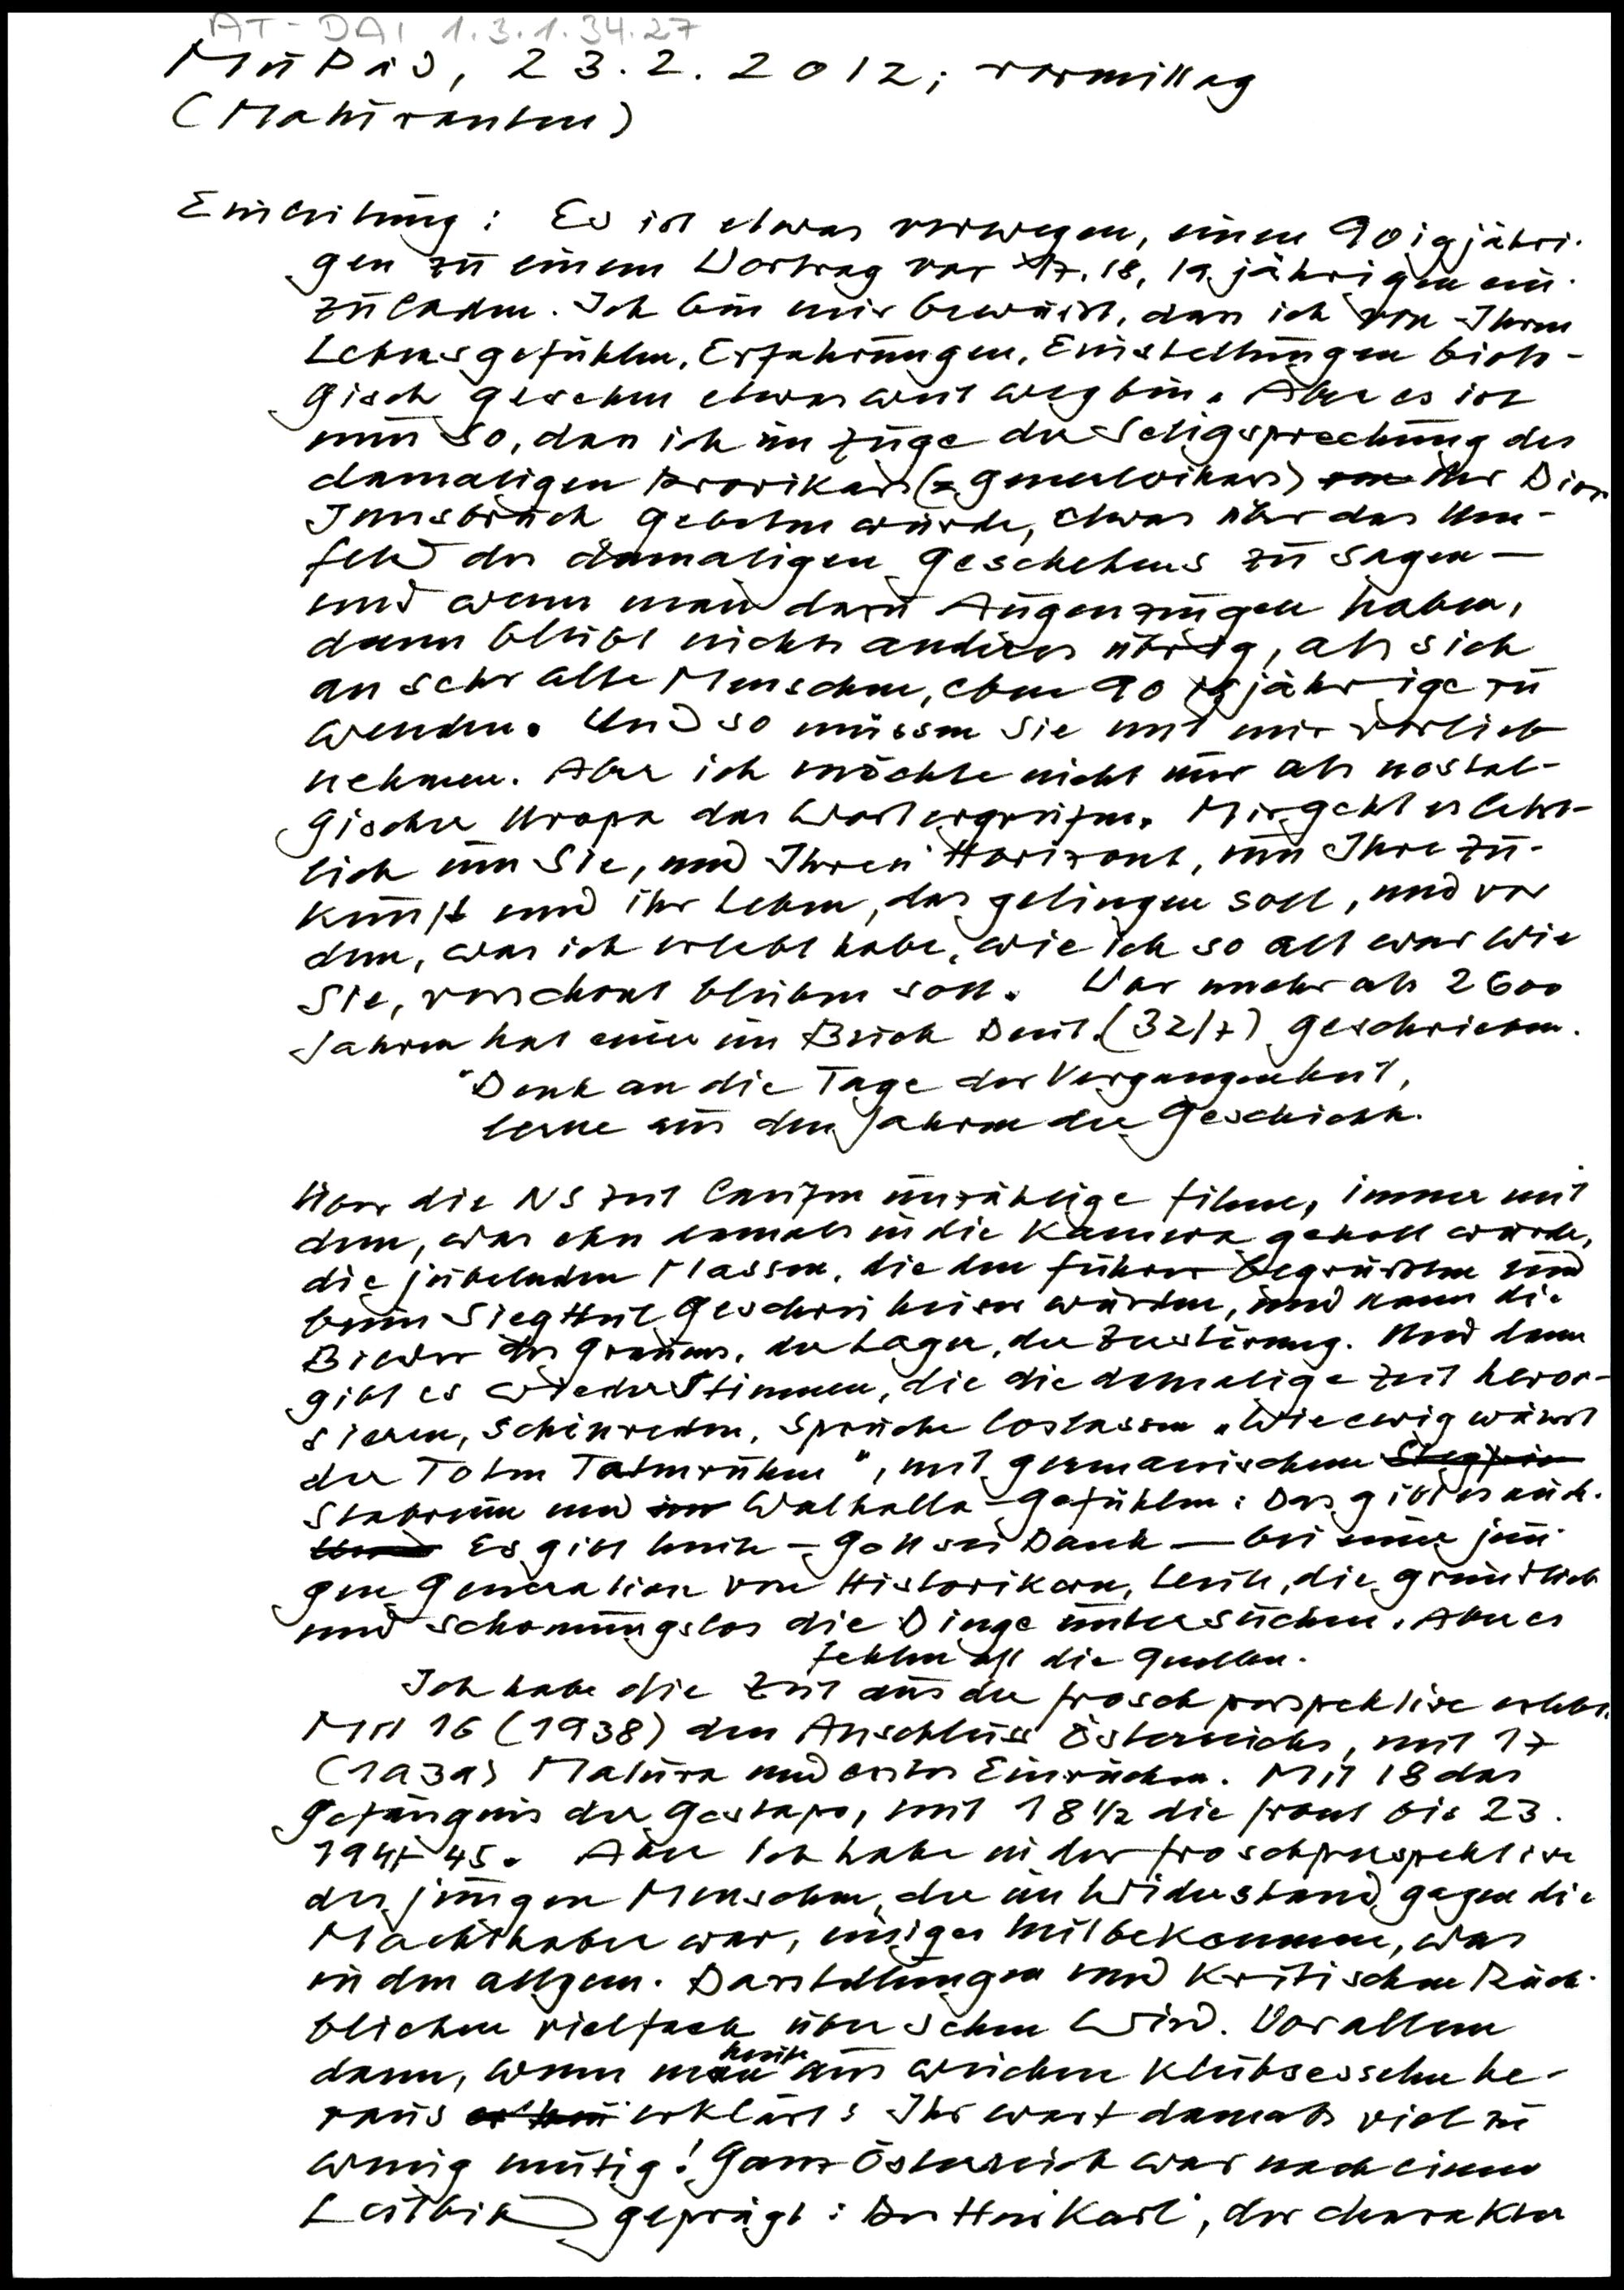 AT-DAI 1.3.1.34.27
MüPäd, 23.2.2012; vormittag
(Maturanten)
Einleitung: Es ist etwas verwegen, einen 90igjähri-
gen zu einem Vortrag vor 17, 18, 19 jährigen ein-
zuladen. Ich bin mir bewusst, dass ich von Ihren
Lebensgefühlen, Erfahrungen, Einstellungen biolo-
gisch gesehen etwas weit weg bin. Aber es ist
nun so, dass ich im Zuge der Seligsprechung des
damaligen Provikars (= Generalvikars) der Diöz
Innsbruck gebeten wurde, etwas über das Um-
feld des damaligen Geschehens zu sagen —
und wenn man dazu Augenzeugen haben,
dann bleibt nichts anderes übrig, als sich
an sehr alte Menschen, eben 90 jährige zu
wenden. Und so müssen Sie mit mir vorlieb
nehmen. Aber ich möchte nicht nur als nostal-
gischer Uropa das Wort ergreifen. Mir geht es letzt-
lich um Sie, und Ihren Horizont, um Ihre Zu-
kunft und ihr Leben, das gelingen soll, und vor
dem, was ich erlebt habe, wie ich so alt war wie
Sie, verschont bleiben soll. Vor mehr als 2600
Jahren hat einer im Buch Deut. (32/7) geschrieben.
"Denk an die Tage der Vergangenheit,
lerne aus den Jahren der Geschichte.
Über die NS Zeit laufen unzählige Filme, immer mit
dem, was eben damals in die Kamera geholt wurde,
die jubelnden Massen, die den Führer begrüßten und
beim Sieg Heil Geschrei heiser wurden, und dann die
Bilder des Grauens, der Lager, der Zerstörung. Und dann
gibt es wieder Stimmen, die die damalige Zeit heroi-
sieren, schönreden, Sprüche loslassen „Wie ewig währt
der Toten Tatenruhm", mit germanischem
Stabreim und Walhalla-Gefühlen: Das gibt es auch.
Es gibt heute — Gott sei Dank — bei einer jun-
gen Generation von Historikern, Leute, die gründlich
und schonungslos die Dinge untersuchen. Aber es
fehlen oft die Quellen.
Ich habe die Zeit aus der Froschperspektive erlebt.
Mit 16 (1938) den Anschluss Österreichs, mit 17
(1939) Matura und erstes Einrücken. Mit 18 das
Gefängnis der Gestapo, mit 18 1/2 die Front bis 23.
1941-45. Aber ich habe in der Froschperspektive
des jungen Menschen, der im Widerstand gegen die
Machthaber war, einiges mitbekommen, was
in den allgem. Darstellungen und kritischen Rück-
blicken vielfach übersehen wird. Vor allem
dann, wenn man heute aus weichen Klubsesseln he-
raus erklärt: Ihr wart damals viel zu
wenig mutig! Ganz Österreich war nach einem
Leitbild geprägt: Der Herr Karl', der charakter